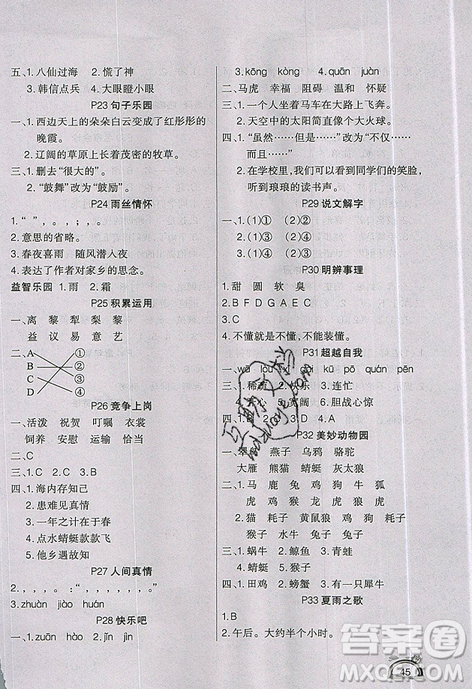 五、1.八仙过海 2.慌了神
3.韩信点兵 4.大眼瞪小眼
P23 句子乐园
一、1.西边天上的朵朵白云变成了红彤彤的
晚霞。
2.辽阔的草原上长着茂密的牧草。
三、1.删去“很大的”。
2.“鼓舞”改为“鼓励”。
P24 雨丝情怀
1.“ , ” , “ , ”。
2.意思的省略。
3.春夜喜雨 随风潜入夜
4.表达了作者对家乡的思念。
益智乐园 1.雨 2.霜
P25 积累运用
一、离 黎 犁 梨 黎
益 议 易 意 艺
二、A ①
B ②
C ③
D ④
P26 竞争上岗
一、活泼 菜肴 叮嘱 衣裳
饲养 安慰 运输 恰当
三、1.C 2.C 3.A
四、1.海内存知己
2.患难见知己
3.一年之计在于春
4.点水蜻蜓款款飞
5.他乡遇故知
P27 人间真情
3.zhuàn jiào xì
P28 快乐吧
一、1.zuó 2.jǐn jìn
3.kōng kòng 4.quān juàn
二、马虎 幸福 阻碍 温和
三、1.一个人坐着马车在大路上飞奔。
2.天空中的太阳简直像个大火球。
四、1.“虽然……但是……”改为“不仅……
而且……”
2.在学校里,我们可以看到同学们的笑脸,
听到琅琅的读书声。
P29 说文解字
一、1.(1)① (2)②
2.(1)③ (2)④
P30 明辨事理
1.甜 圆 软 臭
2.B F D G A E C
3.C
4.不懂就是不懂,不能装懂。
P31 超越自我
3.乐 4.连忙
6.胆战心惊
P32 美妙动物园
一、蜻蜓 燕子 乌鸦 骆驼
大雁 蜻蜓 狐狸 大灰狼
二、1.马 鹿 兔 鸡 狗 牛 狐
虎 鸡 猴 龙 鼠 虎
2.猫 耗子 黄鼠狼 鸡 狗 耗子
三、1.蜗牛 2.鲸鱼 3.青蛙
4.蜻蜓 5.猴子
四、1.田鸡 2.螃蟹 3.有一次,犀牛
P33 夏雨之歌
1.B
2.午后。大约半个小时。
答案圈
45
MXQE.COM